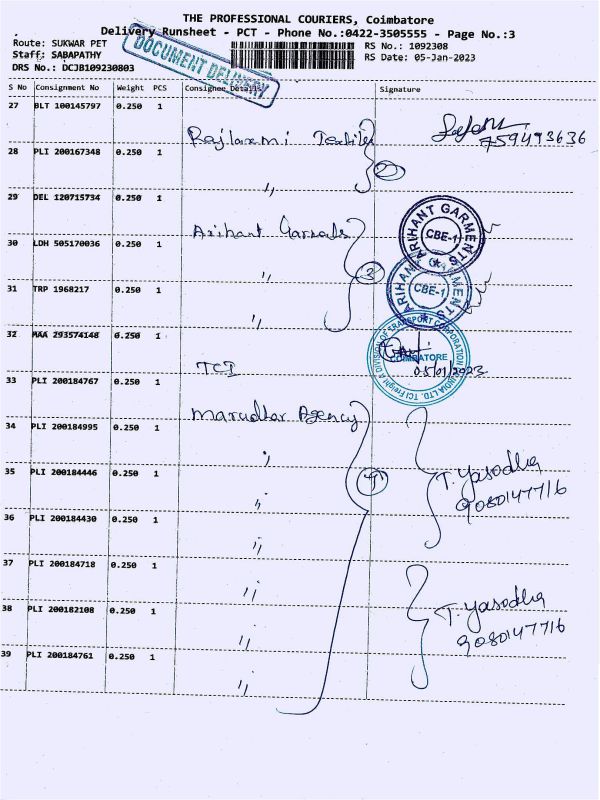 THE PROFESSIONAL COURIERS, Coimbatore
Delivery Runsheet - PCT - Phone No.:0422-3505555 - Page No.:3
Route: SUKWAR PET
RS No.: 1092308
Staff: SABAPATHY
RS Date: 05-Jan-2023
DRS No.: DCJB109230803
DOCUMENT DELIVERY
S No Consignment No Weight PCS Consignee Details Signature
27 BLT 100145797 0.250 1
Rajlaxmi Textiles
759493636
28 PLI 200167348 0.250 1
" 2
29 DEL 120715734 0.250 1
Arihant Garments
ARIHANT GARMENTS CBE-1
30 LDH 505170036 0.250 1
" 3
ARIHANT GARMENTS CBE-1
31 TRP 1968217 0.250 1
"
32 MAA 293574148 0.250 1
TCI
TCI Freight A DIVISION OF TRANSPORT CORPORATION OF INDIA LTD. COIMBATORE
05/01/2023
33 PLI 200184767 0.250 1
Marudhar Agency
34 PLI 200184995 0.250 1
"
T. Yasodha
9080147716
35 PLI 200184446 0.250 1
"
36 PLI 200184430 0.250 1
"
37 PLI 200184718 0.250 1
"
T. Yasodha
9080147716
38 PLI 200182108 0.250 1
"
39 PLI 200184761 0.250 1
"